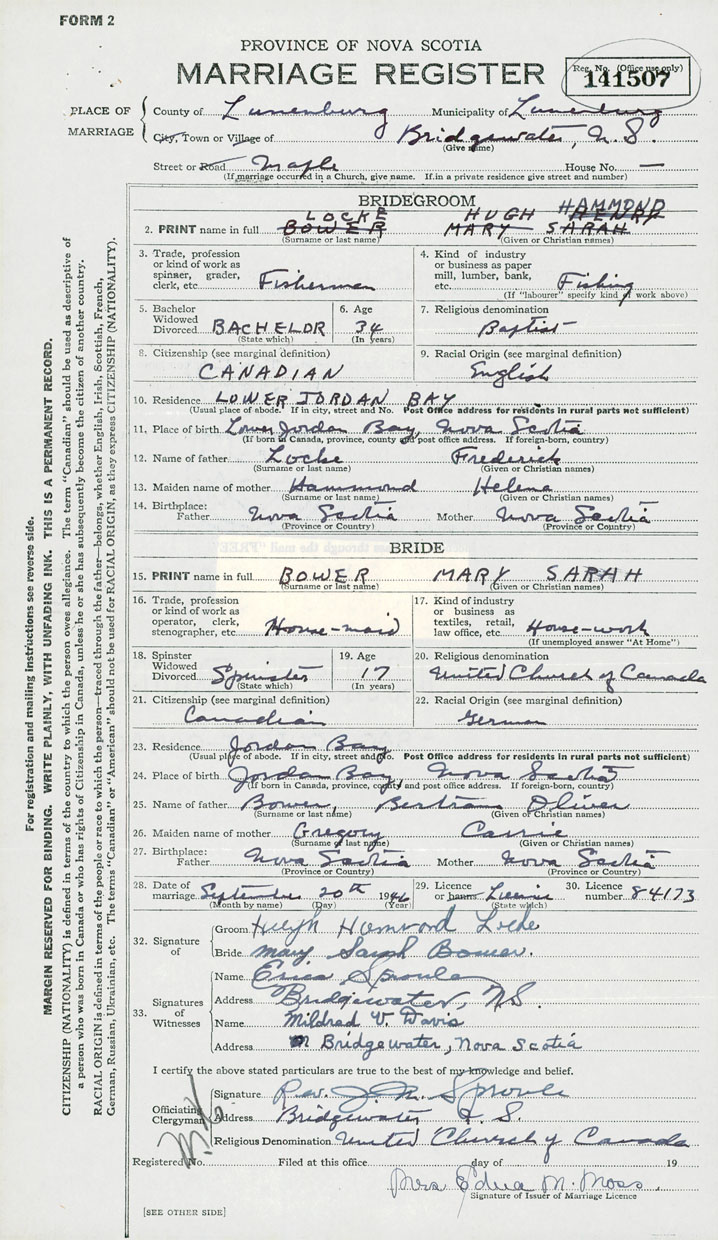 FORM 2
PROVINCE OF NOVA SCOTIA
MARRIAGE REGISTER
Reg. No. (Office use only)
141507
PLACE OF MARRIAGE
County of Lunenburg Municipality of Lunenburg
City, Town or Village of Bridgewater, N.S.
(Give name)
Street or Road Maple House No. —
(If marriage occurred in a Church, give name. If in a private residence give street and number)
BRIDEGROOM
LOCKE HUGH HAMMOND HENRY
2. PRINT name in full BOWER MARY SARAH
(Surname or last name) (Given or Christian names)
3. Trade, profession or kind of work as spinner, grader, clerk, etc. Fisherman
4. Kind of industry or business as paper mill, lumber, bank, etc. Fishing
(If "labourer" specify kind of work above)
5. Bachelor Widowed Divorced BACHELOR
(State which)
6. Age 34
(In years)
7. Religious denomination Baptist
8. Citizenship (see marginal definition) CANADIAN
9. Racial Origin (see marginal definition) English
10. Residence LOWER JORDAN BAY
(Usual place of abode. If in city, street and No. Post Office address for residents in rural parts not sufficient)
11. Place of birth Lower Jordan Bay, Nova Scotia
(If born in Canada, province, county and post office address. If foreign-born, country)
12. Name of father Locke Frederick
(Surname or last name) (Given or Christian names)
13. Maiden name of mother Hammond Helena
(Surname or last name) (Given or Christian names)
14. Birthplace: Father Nova Scotia Mother Nova Scotia
(Province or Country) (Province or Country)
BRIDE
15. PRINT name in full BOWER MARY SARAH
(Surname or last name) (Given or Christian names)
16. Trade, profession or kind of work as operator, clerk, stenographer, etc. House-maid
17. Kind of industry or business as textiles, retail, law office, etc. House-work
(If unemployed answer "At Home")
18. Spinster Widowed Divorced Spinster
(State which)
19. Age 17
(In years)
20. Religious denomination United Church of Canada
21. Citizenship (see marginal definition) Canadian
22. Racial Origin (see marginal definition) German
23. Residence Jordan Bay
(Usual place of abode. If in city, street and No. Post Office address for residents in rural parts not sufficient)
24. Place of birth Jordan Bay, Nova Scotia
(If born in Canada, province, county and post office address. If foreign-born, country)
25. Name of father Bower, Bertram Oliver
(Surname or last name) (Given or Christian names)
26. Maiden name of mother Gregory Carrie
(Surname or last name) (Given or Christian names)
27. Birthplace: Father Nova Scotia Mother Nova Scotia
(Province or Country) (Province or Country)
28. Date of marriage September 20th 1946
(Month by name) (Day) (Year)
29. Licence or banns Licence
(State which)
30. Licence number 84173
32. Signature of
Groom Hugh Hammond Locke
Bride Mary Sarah Bower.
33. Signatures of Witnesses
Name Erica Sproule
Address Bridgewater, N.S.
Name Mildred V. Davis
Address Bridgewater, Nova Scotia
I certify the above stated particulars are true to the best of my knowledge and belief.
Officiating Clergyman
Signature Rev. J. M. Sproule
Address Bridgewater N.S.
Religious Denomination United Church of Canada
Registered No. Filed at this office day of 19
Mrs. Edna M. Moss
Signature of Issuer of Marriage Licence
[SEE OTHER SIDE]
For registration and mailing instructions see reverse side.
MARGIN RESERVED FOR BINDING. WRITE PLAINLY, WITH UNFADING INK. THIS IS A PERMANENT RECORD.
CITIZENSHIP (NATIONALITY) is defined in terms of the country to which the person owes allegiance. The term "Canadian" should be used as descriptive of
a person who was born in Canada or who has rights of Citizenship in Canada, unless he or she has subsequently become the citizen of another country.
RACIAL ORIGIN is defined in terms of the people or race to which the person—traced through the father—belongs, whether English, Irish, Scottish, French,
German, Russian, Ukrainian, etc. The terms "Canadian" or "American" should not be used for RACIAL ORIGIN, as they express CITIZENSHIP (NATIONALITY).